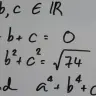 b, c ∈ ℝ
+ b + c = 0
b² + c² = √74
d a⁴ + b⁴ +